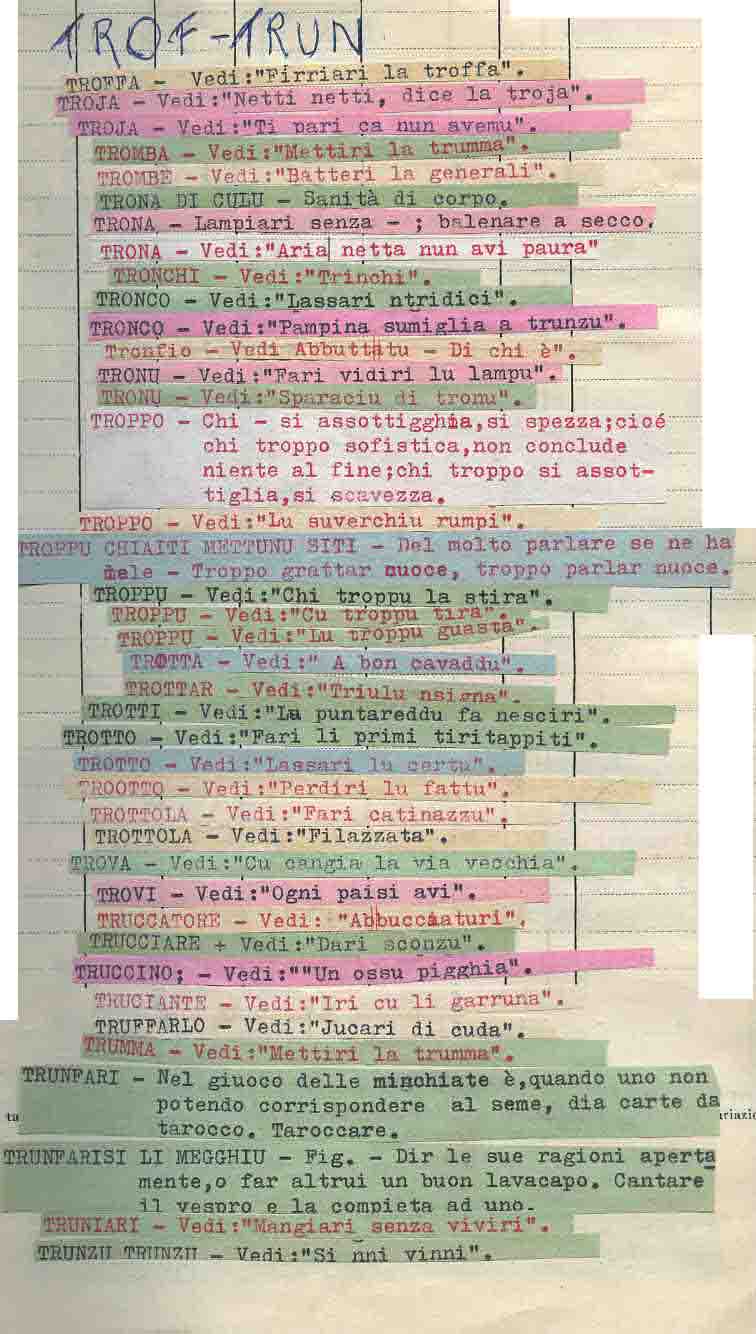 TROF-TRUN
TROFFA - Vedi:"Firriari la troffa".
TROJA - Vedi:"Netti netti, dice la troja".
TROJA - Vedi:"Ti pari ca nun avemu".
TROMBA - Vedi:"Mettiri la trumma".
TROMBE - Vedi:"Batteri la generali".
TRONA DI CULU - Sanità di corpo.
TRONA - Lampiari senza - ; balenare a secco.
TRONA - Vedi:"Aria netta nun avi paura"
TRONCHI - Vedi:"Trinchi".
TRONCO - Vedi:"Lassari ntridici".
TRONCO - Vedi:"Pampina sumiglia a trunzu".
Tronfio - Vedi Abbuttatu - Di chi è".
TRONU - Vedi:"Fari vidiri lu lampu".
TRONU - Vedi:"Sparaciu di tronu".
TROPPO - Chi - si assottigghia,si spezza;cioé
chi troppo sofistica,non conclude
niente al fine;chi troppo si assot-
tiglia,si scavezza.
TROPPO - Vedi:"Lu suverchiu rumpi".
TROPPU CHIAITI METTUNU SITI - Del molto parlare se ne ha
mele - Troppo grattar nuoce, troppo parlar nuoce.
TROPPU - Vedi:"Chi troppu la stira".
TROPPU - Vedi:"Cu troppu tira".
TROPPU - Vedi:"Lu troppu guasta".
TROTTA - Vedi:" A bon cavaddu".
TROTTAR - Vedi:"Triulu nsigna".
TROTTI - Vedi:"Lu puntareddu fa nesciri".
TROTTO - Vedi:"Fari li primi tiritappiti".
TROTTO - Vedi:"Lassari lu certu".
TROOTTO - Vedi:"Perdiri lu fattu".
TROTTOLA - Vedi:"Fari catinazzu".
TROTTOLA - Vedi:"Filazzata".
TROVA - Vedi:"Cu cangia la via vecchia".
TROVI - Vedi:"Ogni paisi avi".
TRUCCATORE - Vedi: "Abbucciaturi".
TRUCCIARE + Vedi:"Dari sconzu".
TRUCCINO; - Vedi:""Un ossu pigghia".
TRUCIANTE - Vedi:"Iri cu li garruna".
TRUFFARLO - Vedi:"Jucari di cuda".
TRUMMA - Vedi:"Mettiri la trumma".
TRUNFARI - Nel giuoco delle minchiate è,quando uno non
potendo corrispondere al seme, dia carte da
tarocco. Taroccare.
ta
riazio
TRUNFARISI LI MEGGHIU - Fig. - Dir le sue ragioni aperta
mente,o far altrui un buon lavacapo. Cantare
il vespro e la compieta ad uno.
TRUNIARI - Vedi:"Mangiari senza viviri".
TRUNZU TRUNZU - Vedi:"Si nni vinni".